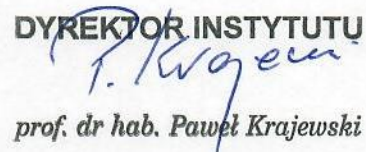 DYREKTOR INSTYTUTU
P. Krajewski
prof. dr hab. Paweł Krajewski